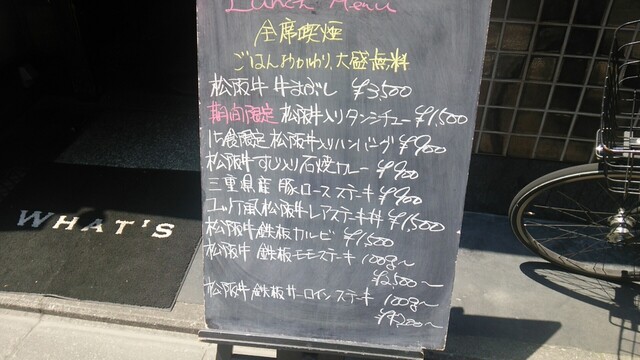 Lunch Menu
全席喫煙
ごはんおかわり、大盛無料
松阪牛 牛まぶし ¥3,500
期間限定 松阪牛入りタンシチュー ¥1,500
15食限定 松阪牛入りハンバーグ ¥900
松阪牛すじ入り石焼カレー ¥900
三重県産 豚ロースステーキ ¥900
ユッケ風松阪牛レアステーキ丼 ¥1,500
松阪牛鉄板カルビ ¥1,500
松阪牛 鉄板モモステーキ 100g〜
¥2,500〜
松阪牛 鉄板サーロインステーキ 100g〜
WHAT'S